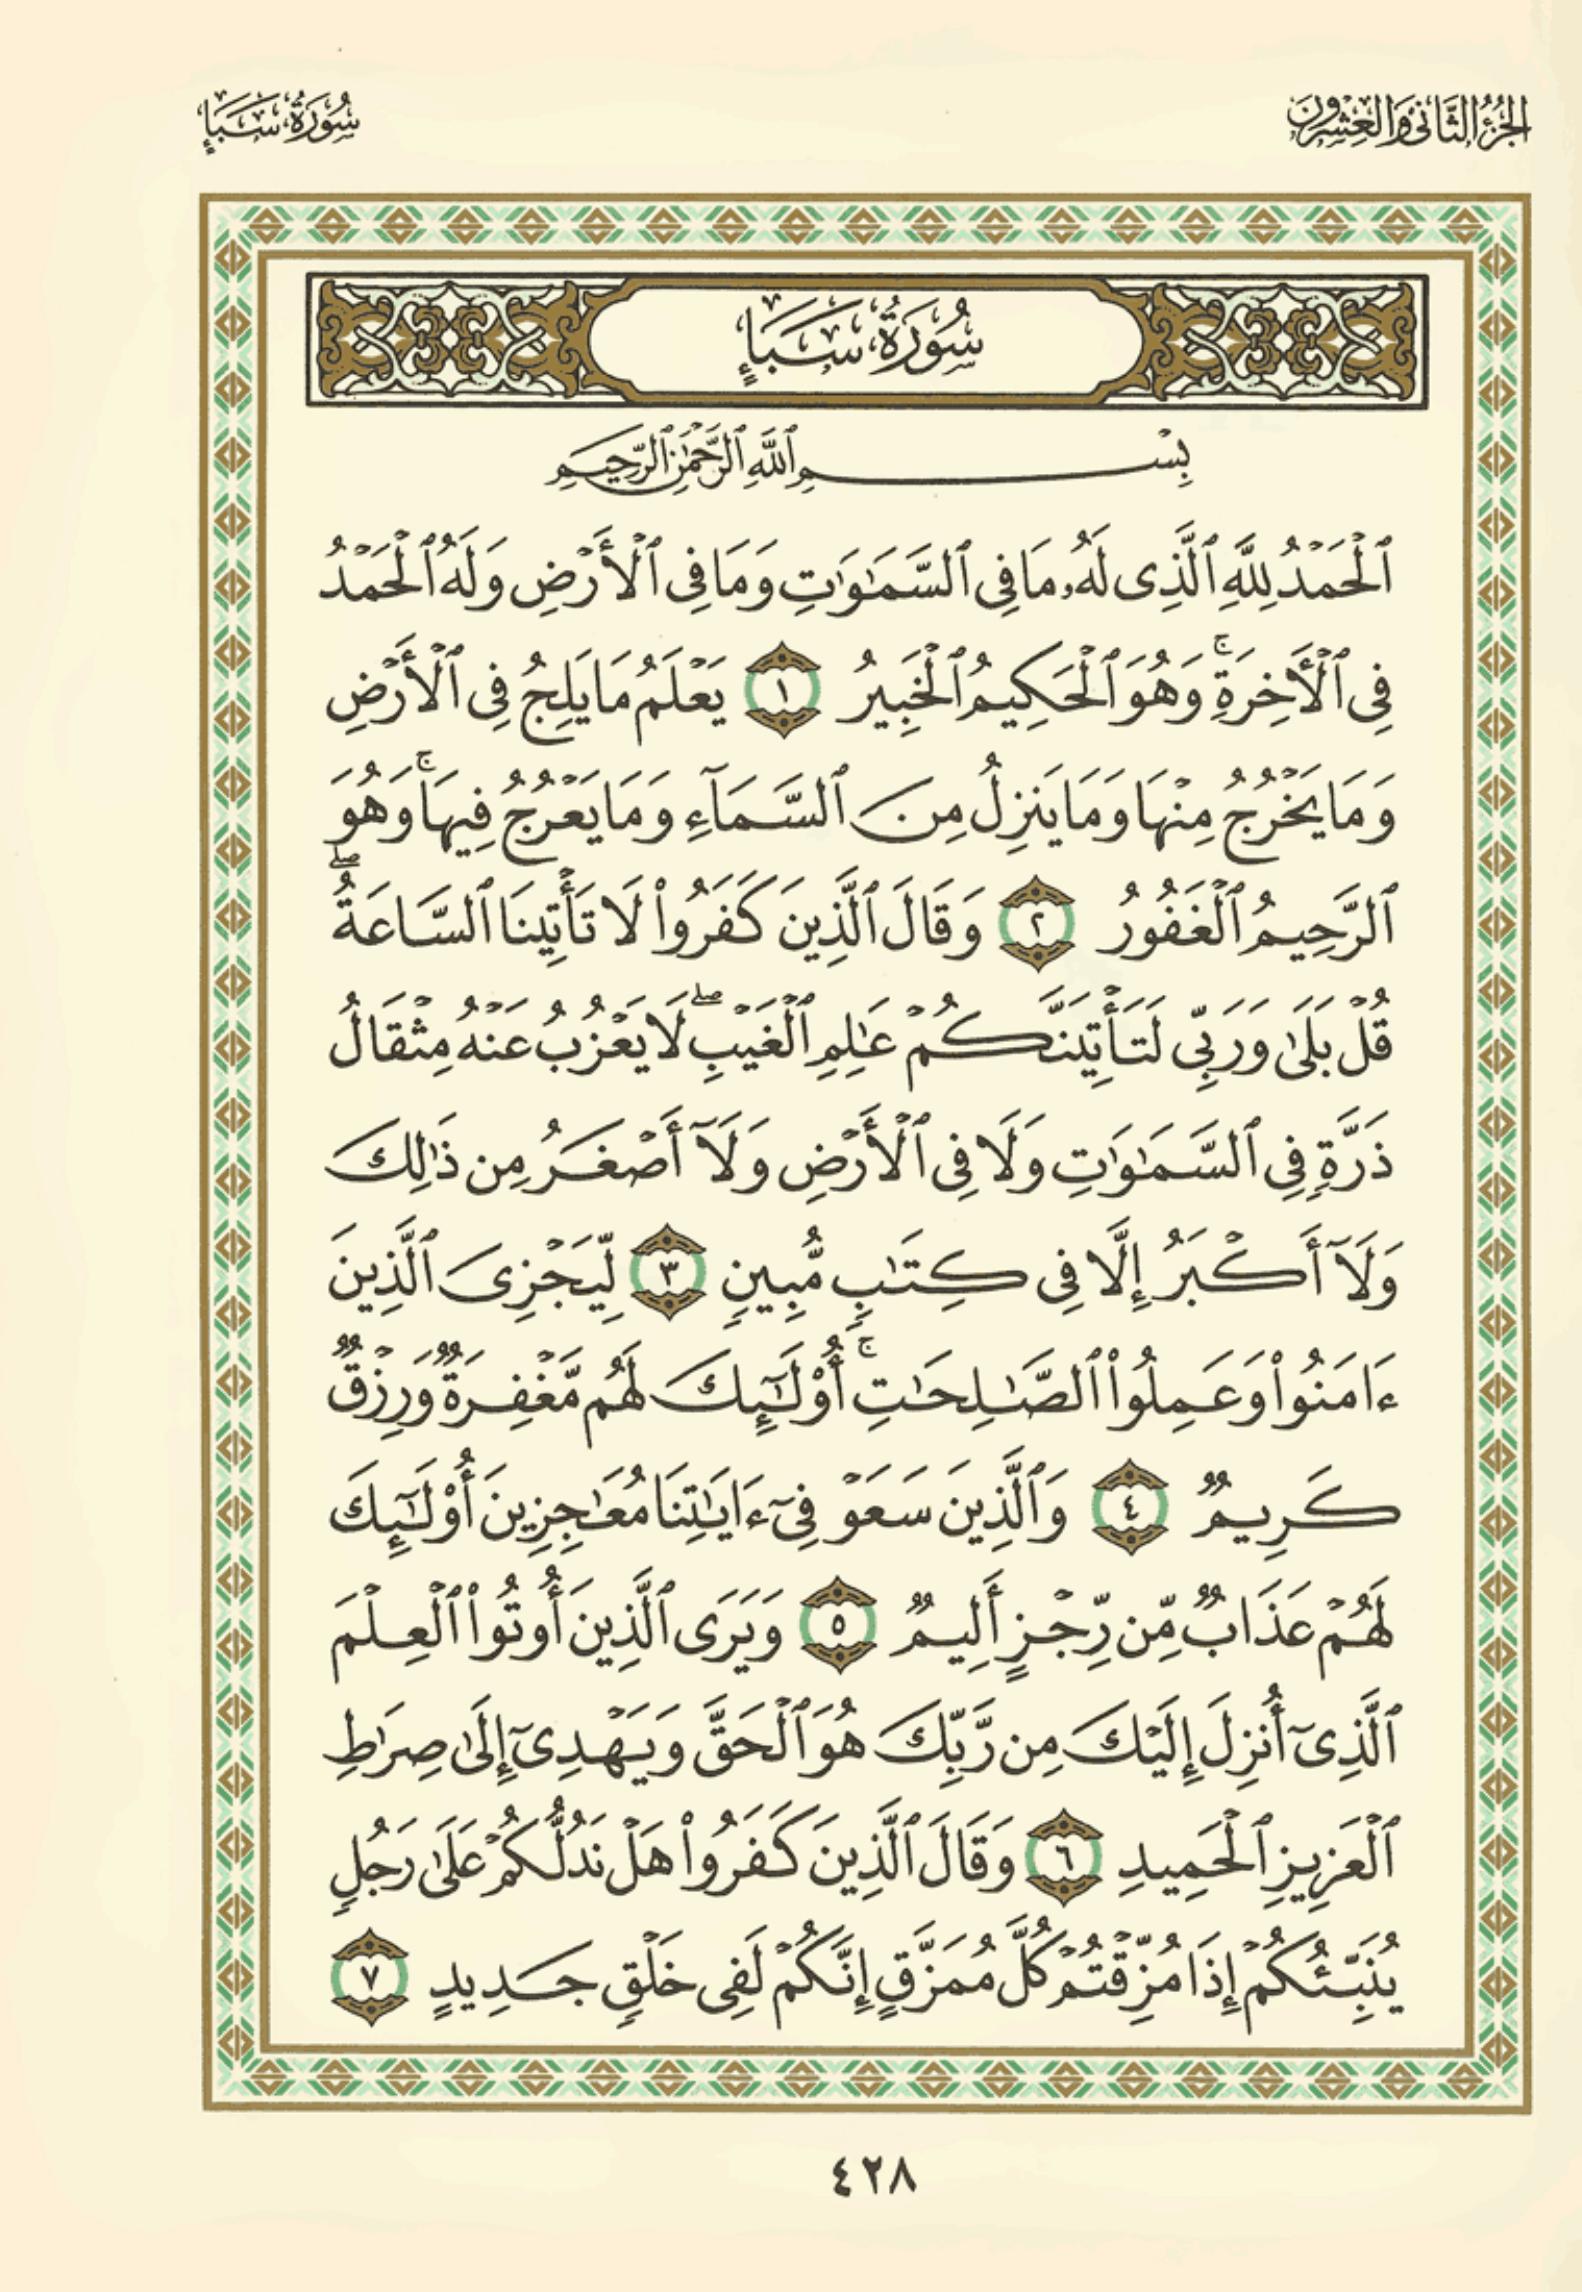 الجزء الثاني والعشرون
سورة سبإ
سُورَةُ سَبَإٍ
بِسْمِ ٱللَّهِ ٱلرَّحْمَٰنِ ٱلرَّحِيمِ
ٱلْحَمْدُ لِلَّهِ ٱلَّذِى لَهُۥ مَا فِى ٱلسَّمَٰوَٰتِ وَمَا فِى ٱلْأَرْضِ وَلَهُ ٱلْحَمْدُ
فِى ٱلْأَخِرَةِ ۚ وَهُوَ ٱلْحَكِيمُ ٱلْخَبِيرُ ١ يَعْلَمُ مَا يَلِجُ فِى ٱلْأَرْضِ
وَمَا يَخْرُجُ مِنْهَا وَمَا يَنزِلُ مِنَ ٱلسَّمَآءِ وَمَا يَعْرُجُ فِيهَا ۚ وَهُوَ
ٱلرَّحِيمُ ٱلْغَفُورُ ٢ وَقَالَ ٱلَّذِينَ كَفَرُوا۟ لَا تَأْتِينَا ٱلسَّاعَةُ ۖ
قُلْ بَلَىٰ وَرَبِّى لَتَأْتِيَنَّكُمْ عَٰلِمِ ٱلْغَيْبِ ۖ لَا يَعْزُبُ عَنْهُ مِثْقَالُ
ذَرَّةٍ فِى ٱلسَّمَٰوَٰتِ وَلَا فِى ٱلْأَرْضِ وَلَآ أَصْغَرُ مِن ذَٰلِكَ
وَلَآ أَكْبَرُ إِلَّا فِى كِتَٰبٍ مُّبِينٍ ٣ لِّيَجْزِىَ ٱلَّذِينَ
ءَامَنُوا۟ وَعَمِلُوا۟ ٱلصَّٰلِحَٰتِ ۚ أُو۟لَٰٓئِكَ لَهُم مَّغْفِرَةٌ وَرِزْقٌ
كَرِيمٌ ٤ وَٱلَّذِينَ سَعَوْ فِىٓ ءَايَٰتِنَا مُعَٰجِزِينَ أُو۟لَٰٓئِكَ
لَهُمْ عَذَابٌ مِّن رِّجْزٍ أَلِيمٌ ٥ وَيَرَى ٱلَّذِينَ أُوتُوا۟ ٱلْعِلْمَ
ٱلَّذِىٓ أُنزِلَ إِلَيْكَ مِن رَّبِّكَ هُوَ ٱلْحَقَّ وَيَهْدِىٓ إِلَىٰ صِرَٰطِ
ٱلْعَزِيزِ ٱلْحَمِيدِ ٦ وَقَالَ ٱلَّذِينَ كَفَرُوا۟ هَلْ نَدُلُّكُمْ عَلَىٰ رَجُلٍ
يُنَبِّئُكُمْ إِذَا مُزِّقْتُمْ كُلَّ مُمَزَّقٍ إِنَّكُمْ لَفِى خَلْقٍ جَدِيدٍ ٧
٤٢٨